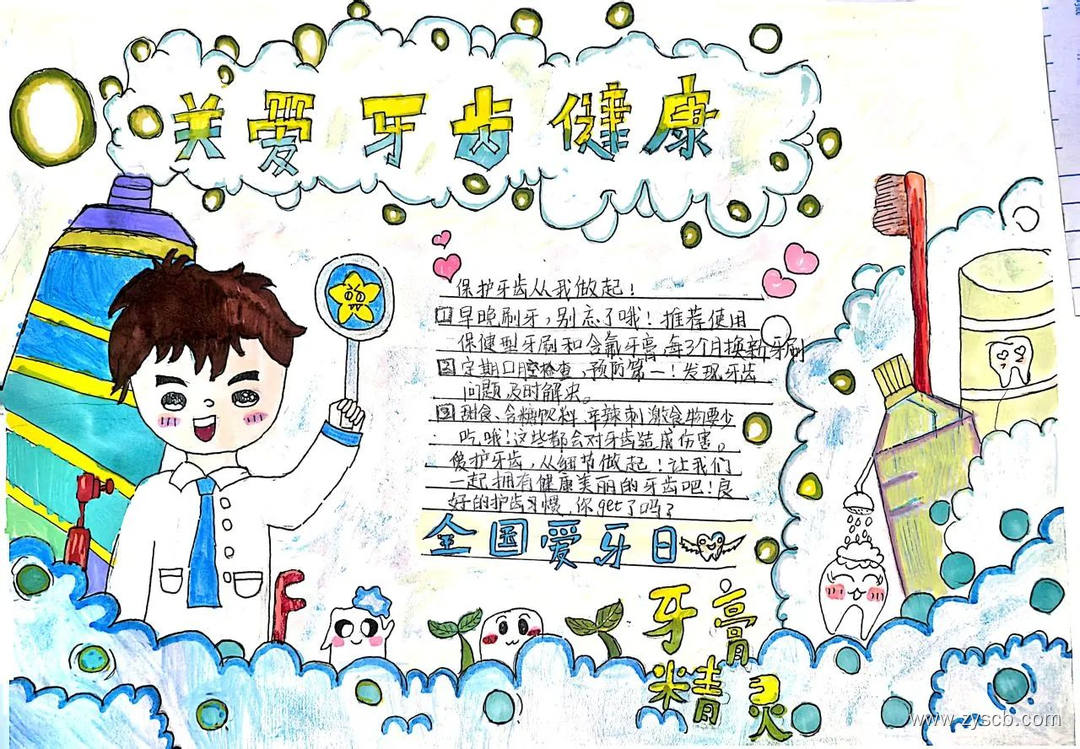 关爱牙齿健康
保护牙齿从我做起！
1 早晚刷牙，别忘了哦！推荐使用
保健型牙刷和含氟牙膏，每3个月换新牙刷
2 定期口腔检查，预防第一！发现牙齿
问题及时解决。
3 甜食、含糖饮料、辛辣刺激食物要少
吃哦！这些都会对牙齿造成伤害。
爱护牙齿，从细节做起！让我们
一起拥有健康美丽的牙齿吧！良
好的护齿习惯，你get了吗？
全国爱牙日
牙膏
精灵
www.zyscb.com